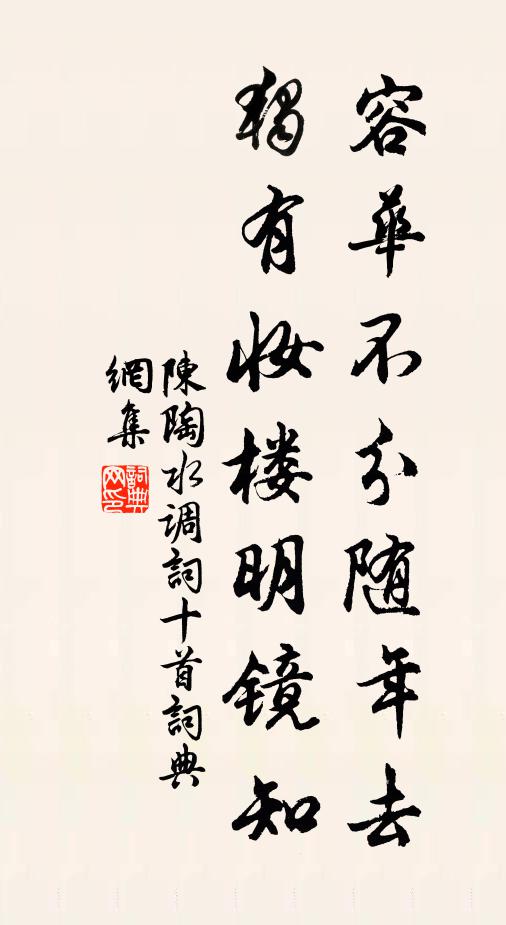 容華不分随年去
獨有妝楼明鏡知
陳陶水调詞十首詞典
網集
詞典
网印